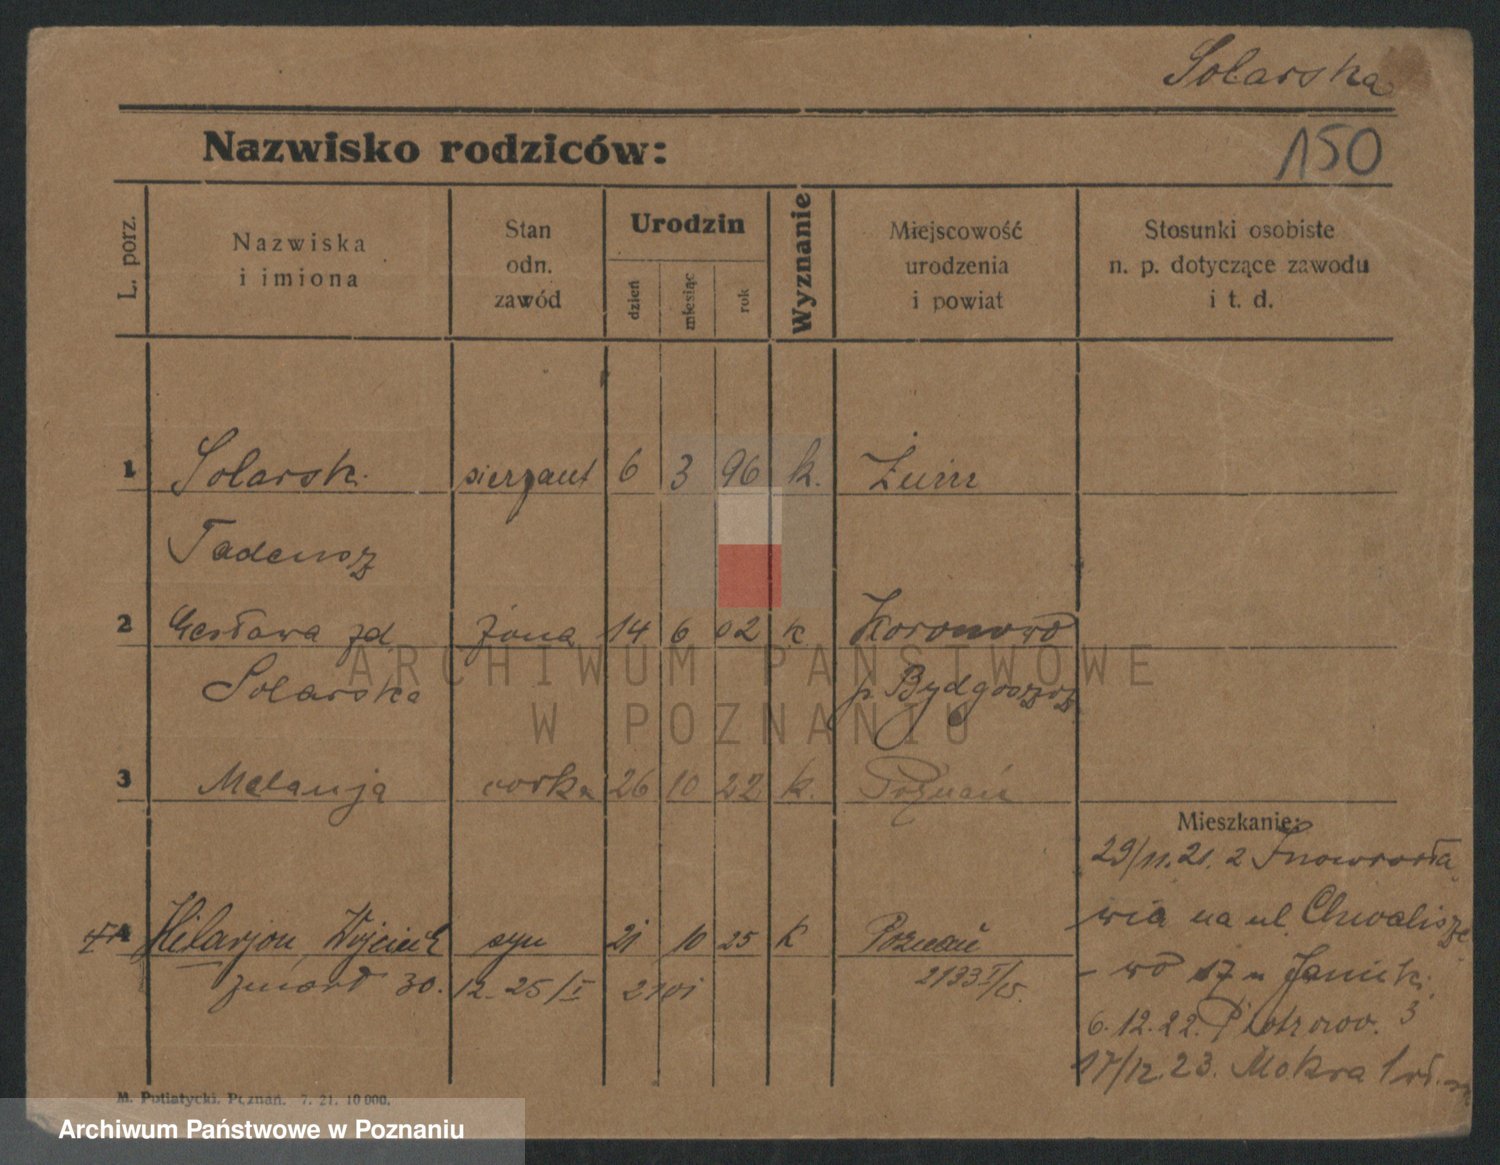 Solarska
150
Nazwisko rodziców:
L. porz.
Nazwiska
i imiona
Stan
odn.
zawód
Urodzin
dzień
miesiąc
rok
Wyznanie
Miejscowość
urodzenia
i powiat
Stosunki osobiste
n. p. dotyczące zawodu
i t. d.
1 Solarsk. sierżant 6 3 96 k. Żnin
Tadeusz
2 zd. żona 14 6 02 k Koronowo
Solarska p. Bydgoszcz
3 Melanja córka 26 10 22 k. Poznań
Mieszkanie:
29/11.21. z Inowrocła
wia na ul. Chwalisze
4 Hilarjon, Wojciech syn 21 10 25 k Poznań
- wo 17 u
zmarł 30. 12. 25/I 2101 2193
6.12.22. Piotrow. 3
17/12.23. Mokra 1
M. Putiatycki, Poznań. 7. 21. 10 000.
ARCHIWUM PAŃSTWOWE
W POZNANIU
Archiwum Państwowe w Poznaniu